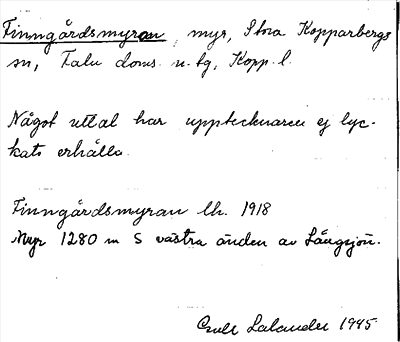 Finngårdsmyran, myr, Stora Kopparbergs
sn, Falu doms. u. tg, Kopp. l.
Något uttal har upptecknaren ej lyc-
kats erhålla.
Finngårdsmyran lh. 1918
Myr 1280 m S västra änden av Långsjön.
Lalander 1945